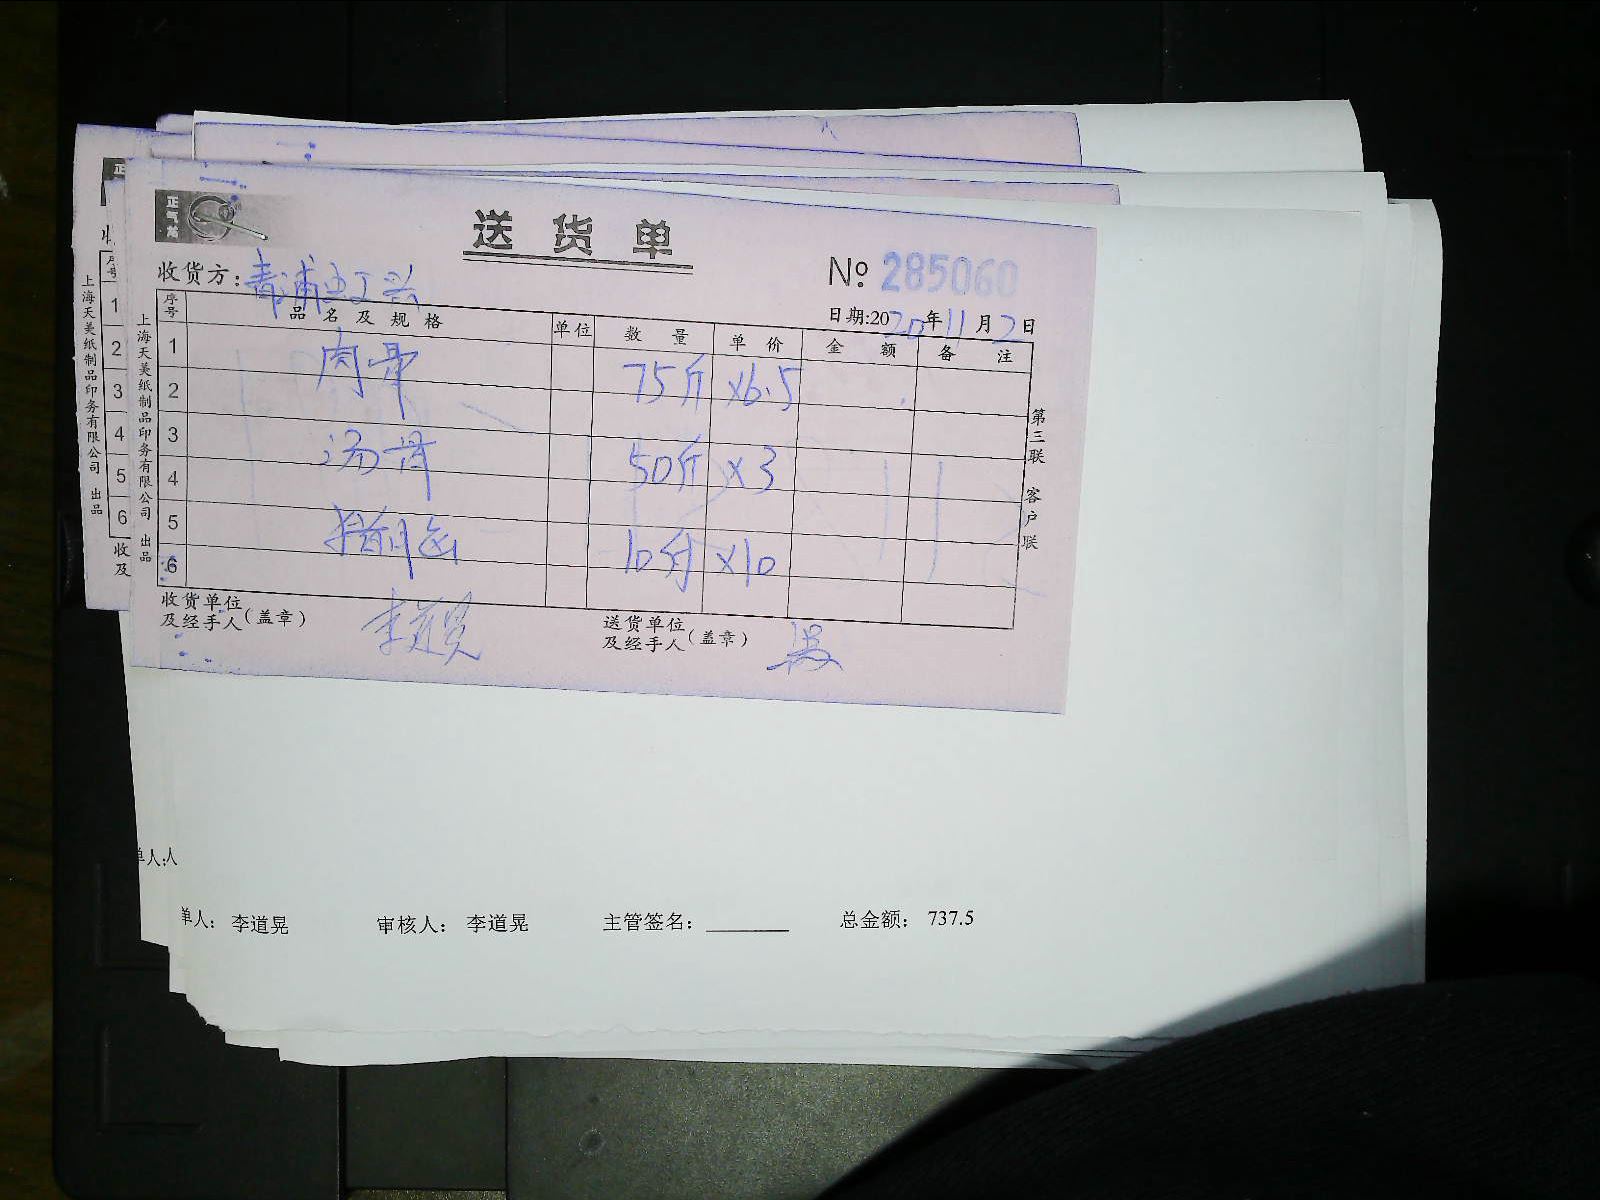 送货单
收货方:青浦
№ 285060
日期:2020年11月2日
序号 品名及规格 单位 数量 单价 金额 备注
1 肉骨 75斤 ×6.5
2
3 汤骨 50斤 ×3
4
5 10斤 ×10
6
收货单位及经手人(盖章) 李道晃
送货单位及经手人(盖章)
第三联 客户联
上海天美纸制品印务有限公司 出品
上海天美纸制品印务有限公司 出品
1
2
3
4
5
6
收
及
单人:人
单人: 李道晃 审核人: 李道晃 主管签名: 总金额: 737.5